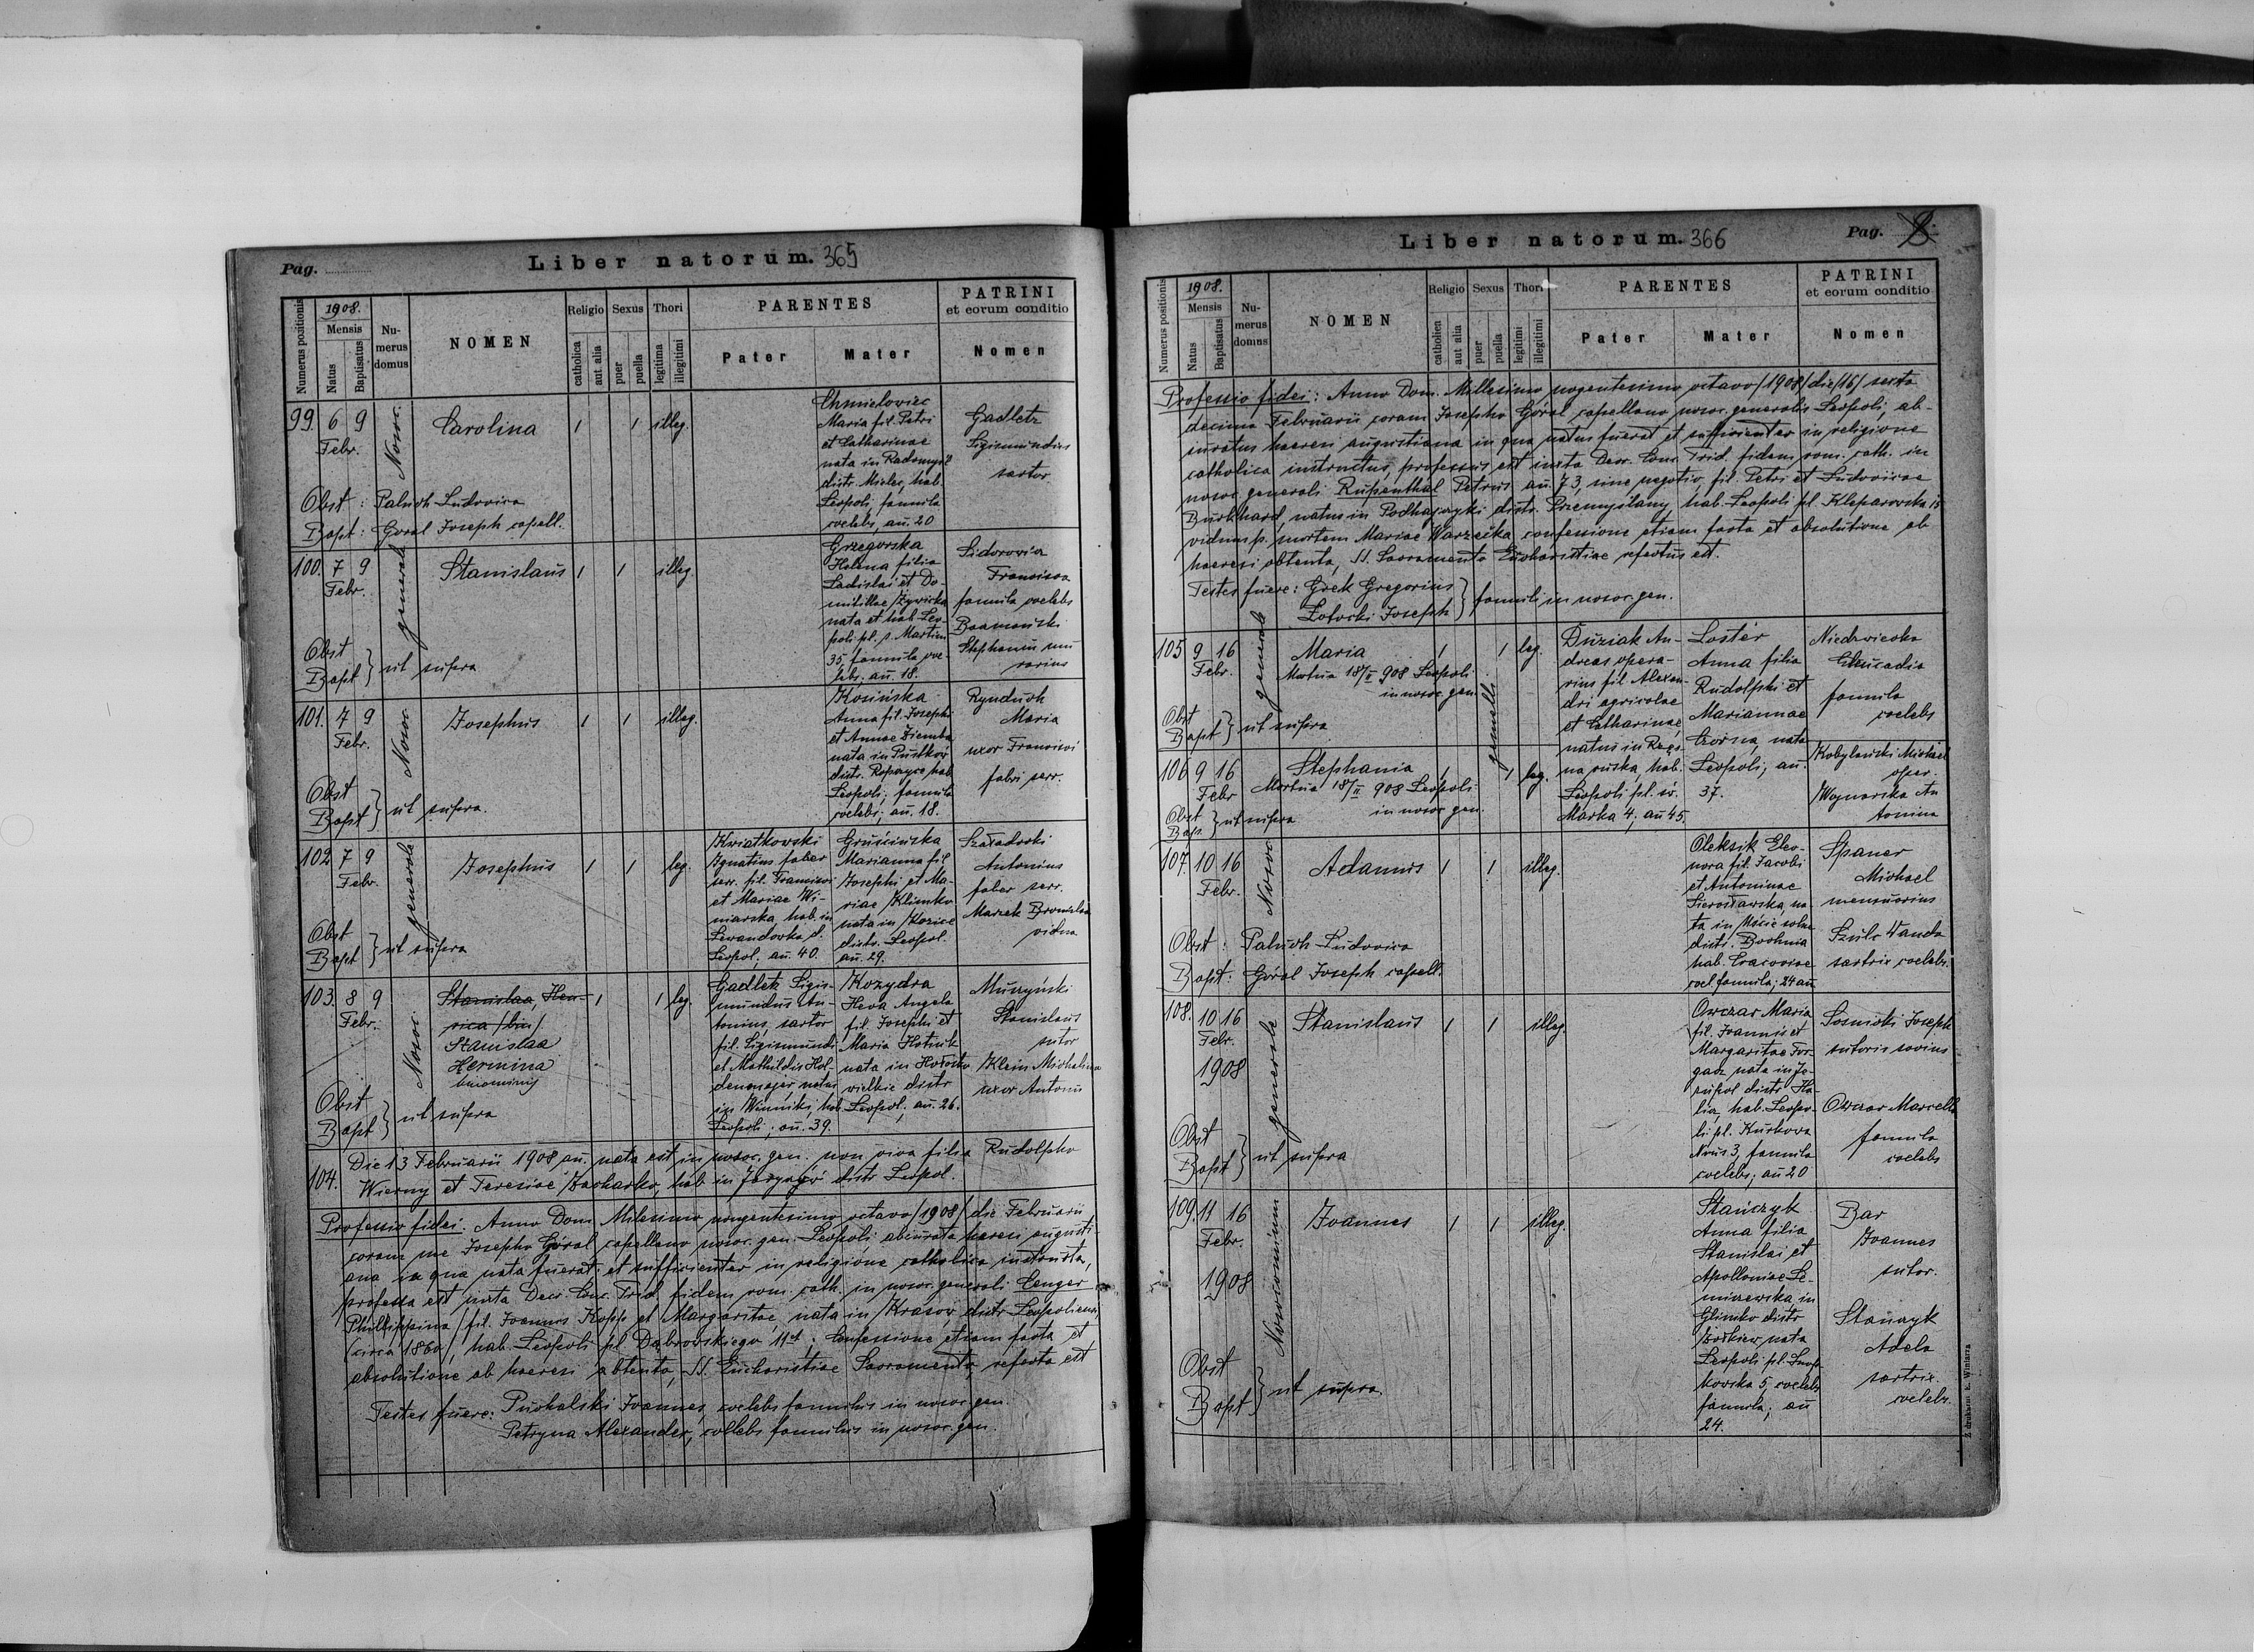 Pag.
Liber natorum. 365
Numerus positionis
1908.
Mensis
Natus
Baptisatus
Numerus domus
NOMEN
Religio
catholica
aut alia
Sexus
puer
puella
Thori
legitima
illegitimi
PARENTES
Pater
Mater
PATRINI
et eorum conditio
Nomen
99. 6 9 Febr.
Nosoc.
Carolina
1 1 illeg.
Chmielowiec
Maria fil. Petri
et Catharinae
nata in Radomyśl
distr. Mielec, hab.
Leopoli, famula
coelebs, an. 20
Gadletz
Sigismundus
sartor
Obst: Paluch Ludovica
Bapt: Góral Joseph capell.
100. 7 9 Febr.
generale
Stanislaus
1 1 illeg.
Grzegorska
Helena filia
Ladislai et Do-
mitillae Żywicka
nata et hab. Leo-
poli pl. s. Martini
35, famula coe-
lebs, an. 18.
Francisca
famula coelebs
Stephanus mu
rarius
Obst
Bapt } ut supra
101. 7 9 Febr.
Nosoc.
Josephus
1 1 illeg.
Kosińska
Anna fil. Josephi
et Annae Ziemba
nata in Pustków
distr. Ropczyce hab.
Leopoli, famula
coelebs, an. 18.
Rynduch
Maria
uxor Francisci
fabri serr.
Obst
Bapt } ut supra.
102 7 9 Febr.
generale
Josephus
1 1 leg.
Kwiatkowski
Ignatius faber
serr. fil. Francisci
et Mariae Wi-
niarska hab. in
Lewandówka d.
Leopol. an. 40.
Gruścińska
Marianna fil
Josephi et Ma-
riae Klimko
nata in Kozice
distr. Leopol.
an. 29.
Antonius
faber serr.
Marzek Bronislava
vidua
Obst
Bapt } ut supra
103. 8 9 Febr.
Nosoc.
Stanislaa, Hen-
rica /bin/
Stanislaa
Hermina
binominis
1 1 leg.
Gadletz Sigis-
mundus An-
tonius, sartor
fil. Sigismundi
et Mathildis Hol-
denmajer natus
in Winniki, hab.
Leopoli, an. 39.
Kozydra
Heva Angela
fil. Josephi et
Maria Hotnik
nata in Hołosko
wielkie distr
Leopol, an. 26.
Muszyński
Stanislaus
sutor
Klein Michalina
uxor Antonii
Obst
Bapt } ut supra
104. Die 13 Februarii 1908 an. nata est in nosoc. gen. non viva filia Rudolpho
Wierny et Teresiae Zacharko, hab in Jaryczów distr Leopol.
Professio fidei. Anno Dom. Milesimo nongentesimo octavo /1908/ die Februarii
coram me Josepho Góral capellano nosoc. gen. Leopoli abiurata haeresi augusti-
ana in qua nata fuerat et sufficienter in religione catholica instructa,
professa est iuxta Decr. Conc. Trid. fidem rom. cath. in nosoc. generali Cenger
Phillippina /fil. Joannes Kopp et Margaritae, nata in Krasów, distr Leopoliensi,
circa 1860/, hab. Leopoli pl Dąbrowskiego 11. Confessione etiam facta et
absolutione ab haeresi obtenta, SS. Eucharistiae Sacramento, refecta est
Testes fuere: Puchalski Joannes, coelebs famulus in nosoc. gen.
Petryna Alexander, coelebs famulus in nosoc. gen.
Liber natorum. 366
Pag. 8.
Numerus positionis
1908.
Mensis
Natus
Baptisatus
Numerus domus
NOMEN
Religio
catholica
aut alia
Sexus
puer
puella
Thori
legitimi
illegitimi
PARENTES
Pater
Mater
PATRINI
et eorum conditio
Nomen
Professio fidei: Anno Dom. Millesimo nogentesimo octavo /1908/ die /16/ sexta
decima Februarii coram Josepho Góral capellano nosoc. generalis Leopoli, ab-
iuratus haeresi augustiana in qua natus fuerat et sufficienter in religione
catholica instructus, professus est iuxta Decr. Conc. Trid. fidem rom. cath. in
nosoc generali Rupenthal Petrus an. 73, sine negotio, fil. Petri et Ludovicae
Burkhard, natus in Podhajczyki distr. Przemyślany, hab. Leopoli pl. Kleparowska 15
viduus p. mortem Mariae Warzecka confessione etiam facta et absolutione ab
haeresi obtenta, SS. Sacramento Eucharistiae refectus est.
Testes fuere: Grek Gregorius
Zotocki Joseph } famuli in nosoc. gen.
105 9 16 Febr.
generale
Maria
Mortua 18/II 908 Leopoli
in nosoc. gen.
1 1 leg.
gemelli
Duziak An-
dreas opera-
rius fil. Alexan-
dri agricolae
et Catharinae,
natus in Rzęs-
na ruska, hab.
Leopoli pl. św.
Marka 4, an 45.
Loster
Anna filia
Rudolphi et
Mariannae
Czorna, nata
Leopoli, an.
37.
Niedzwiecka
Leucadia
famula
coelebs
Obst
Bapt } ut supra
106 9 16 Febr
Stephania
Mortua 18/II 908 Leopoli
in nosoc gen.
1 1 leg.
Kobylański Michael
oper.
Wojnarska An
tonina
Obst
Bap. } ut supra
107. 10 16 Febr.
Nosoc
Adamus
1 1 illeg.
Oleksik Eleo-
nora fil. Jacobi
et Antoninae
Sierosławska, na-
ta in
distr. Bochnia
hab. Cracoviae
coel famula, 24 an
Spaner
Michael
mensuarius
Szulc Wanda
sartrix coelebs.
Obst: Paluch Ludovica
Bapt: Góral Joseph capell.
108. 10 16 Febr.
1908
generale
Stanislaus
1 1 illeg.
Owczar Maria
fil. Joannis et
Margaritae For-
gacz nata in Je-
zupol distr. Ha-
licz, hab. Leopo-
li pl. Kurkowa
Nrus 3, famula
coelebs, an 20
Sosnicki Joseph
sutoris socius
Owczar Marcella
famula
coelebs
Obst
Bapt } ut supra
109. 11 16 Febr.
1908
Nosocomium
Joannes
1 1 illeg.
Stańczyk
Anna filia
Stanislai et
Apolloniae Le-
miszewska, in
Glinsko distr
Żółkiew, nata
Leopoli pl.
kowska 5, coelebs
famula, an
24.
Bar
Joannes
sutor.
Stańczyk
Adela
sartrix
coelebs.
Obst
Bapt } ut supra.
Z drukarni E. Winiarza